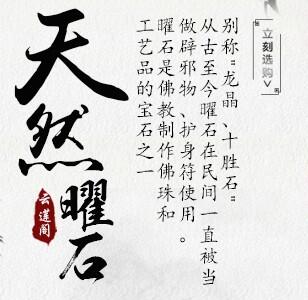 天然曜石
云莲阁
别称"龙晶、十胜石"
从古至今曜石在民间一直被当
做辟邪物、护身符使用。
曜石是佛教制作佛珠和
工艺品的宝石之一
立刻选购